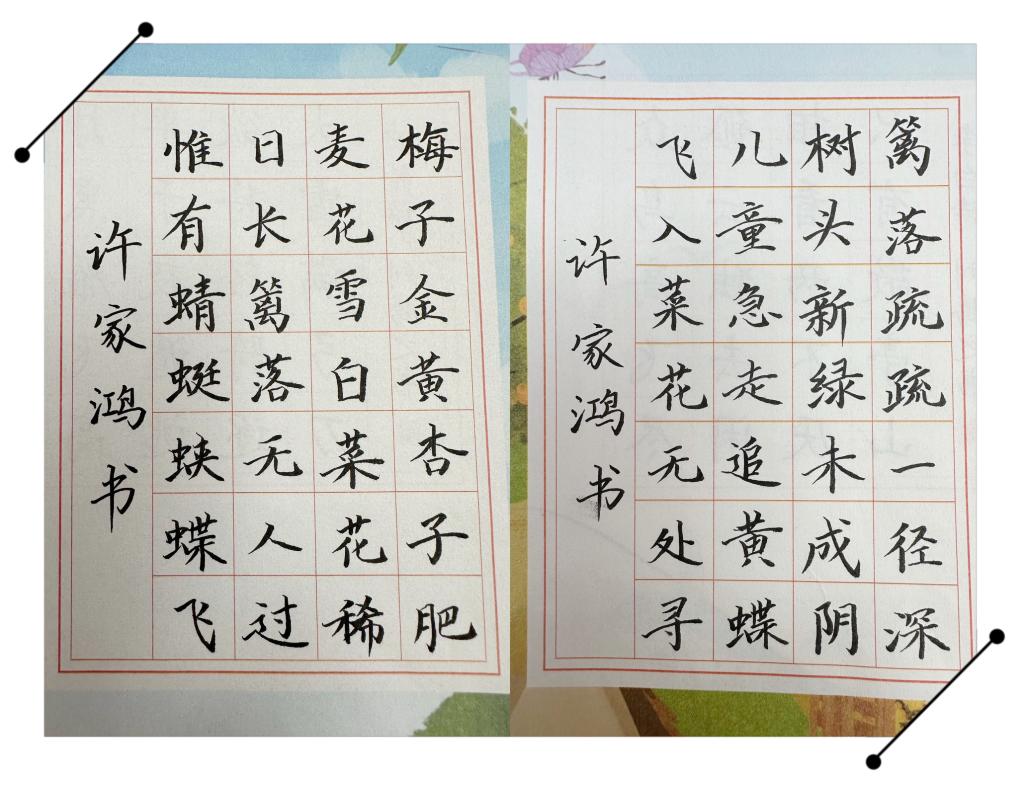 梅子金黄杏子肥
麦花雪白菜花稀
日长篱落无人过
惟有蜻蜓蛱蝶飞
许家鸿书
篱落疏疏一径深
树头新绿未成阴
儿童急走追黄蝶
飞入菜花无处寻
许家鸿书